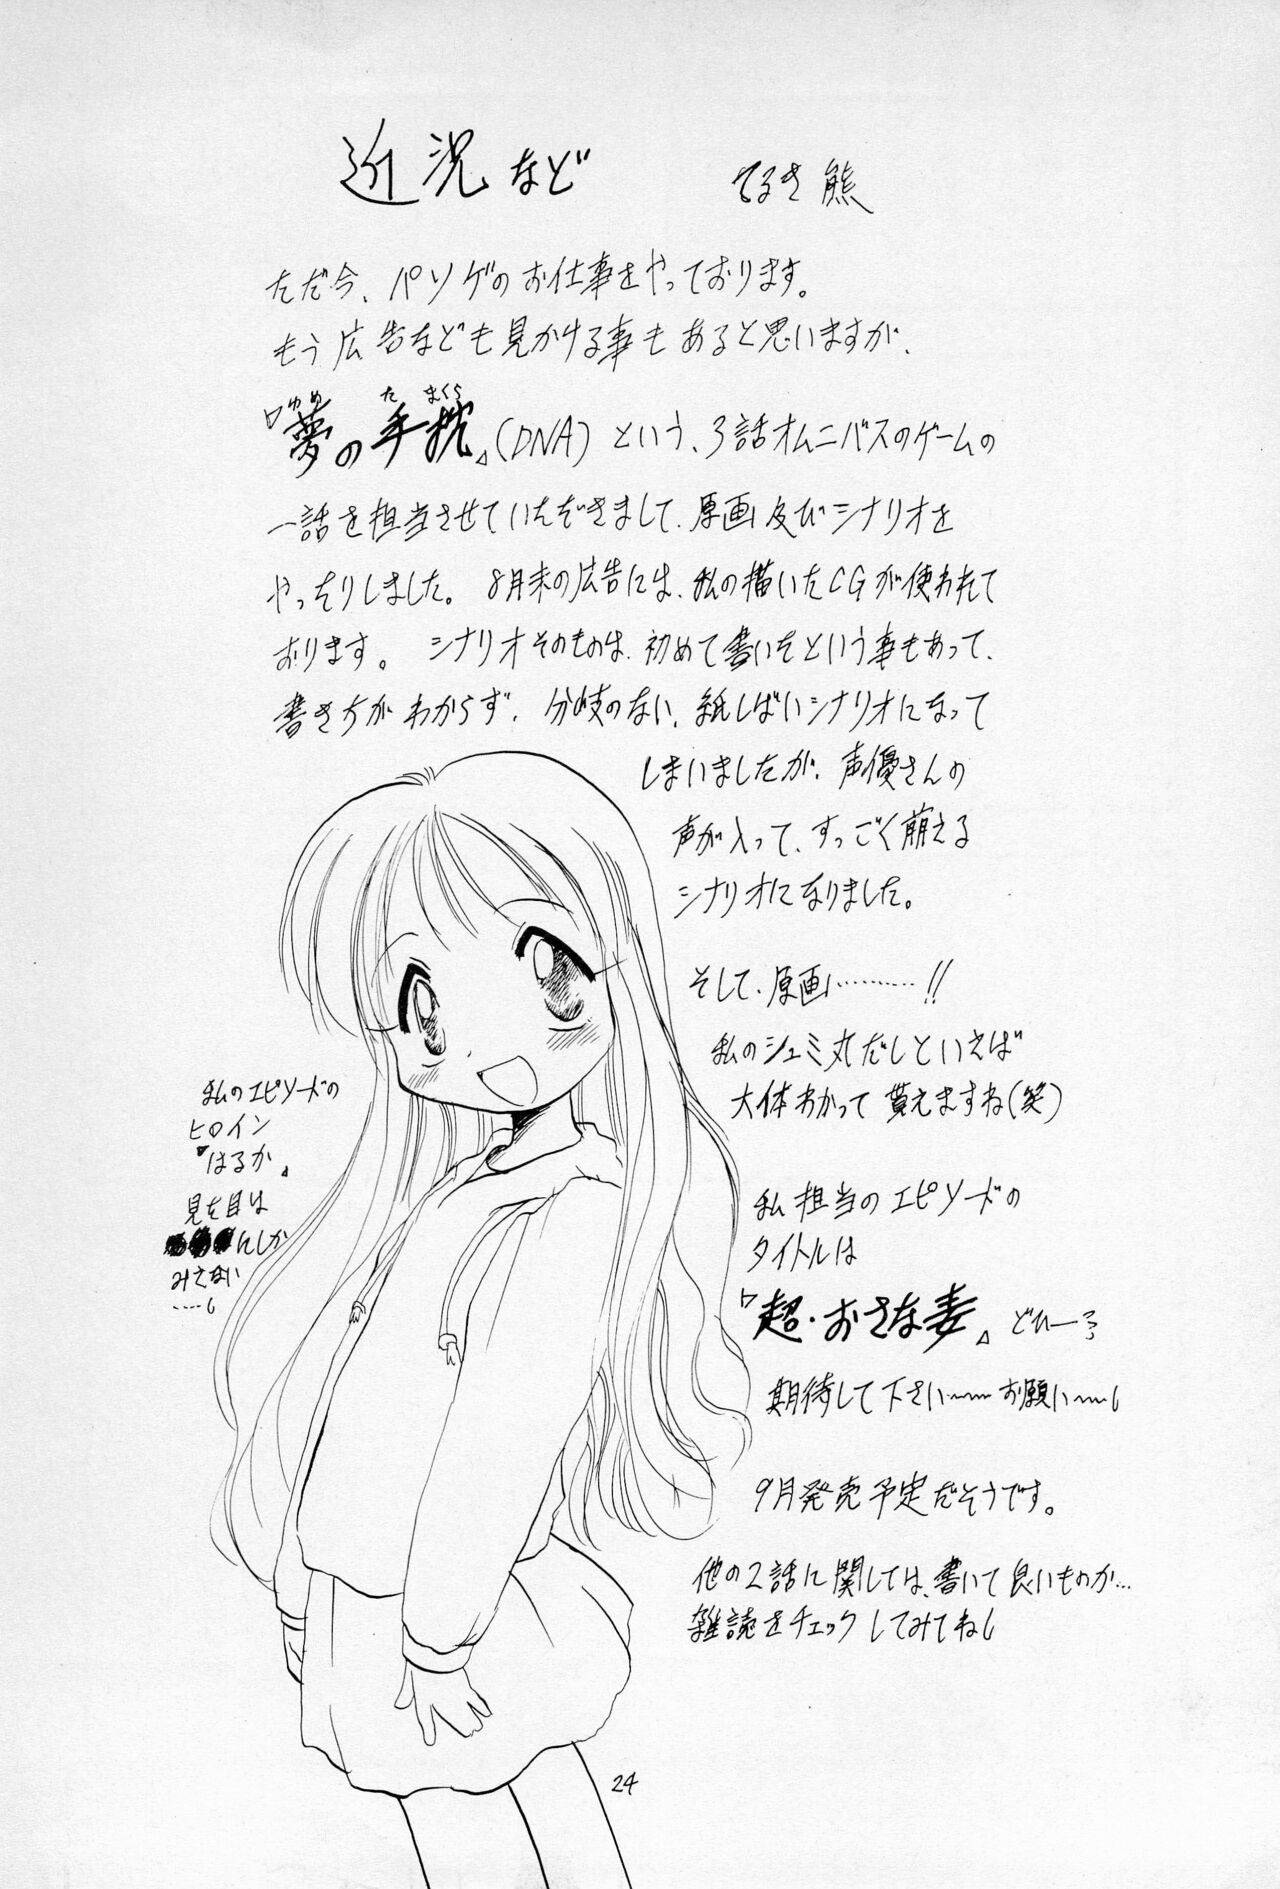 近況など てるき熊
ただ今、パソゲのお仕事をやっております。
もう広告なども見かける事もあると思いますが、
『夢の手枕』(DNA)という、3話オムニバスのゲームの
ゆめ た まくら
一話を担当させていただきまして、原画及びシナリオを
やったりしました。8月末の広告には、私の描いたCGが使われて
おります。シナリオそのものは、初めて書いたという事もあって、
書き方がわからず、分岐のない、紙しばいシナリオになって
しまいましたが、声優さんの
声が入って、すっごく萌える
シナリオになりました。
そして、原画………!!
私のシュミ丸だしといえば
大体わかって貰えますね(笑)
私のエピソードの
ヒロイン
『はるか』
見た目は
んしか
みえない
……し
私担当のエピソードの
タイトルは
『超・おさな妻』どひーっ
期待して下さい〜〜お願い〜〜し
9月発売予定だそうです。
他の2話に関しては、書いて良いものか…
雑誌をチェックしてみてねし
24